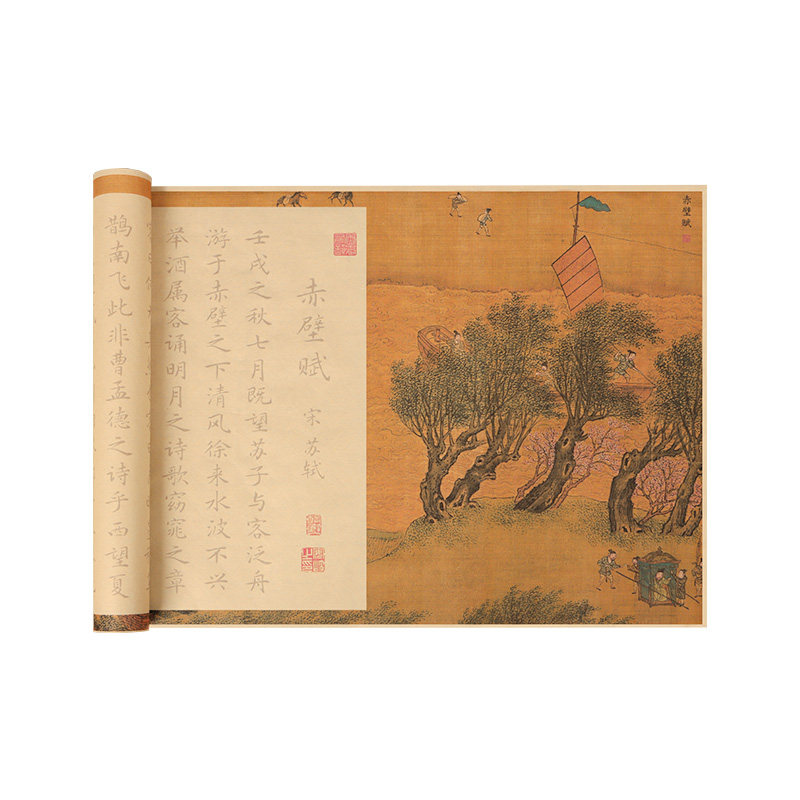 赤壁赋
赤壁赋
宋 苏轼
壬戌之秋七月既望苏子与客泛舟
游于赤壁之下清风徐来水波不兴
举酒属客诵明月之诗歌窈窕之章
鹊南飞此非曹孟德之诗乎西望夏